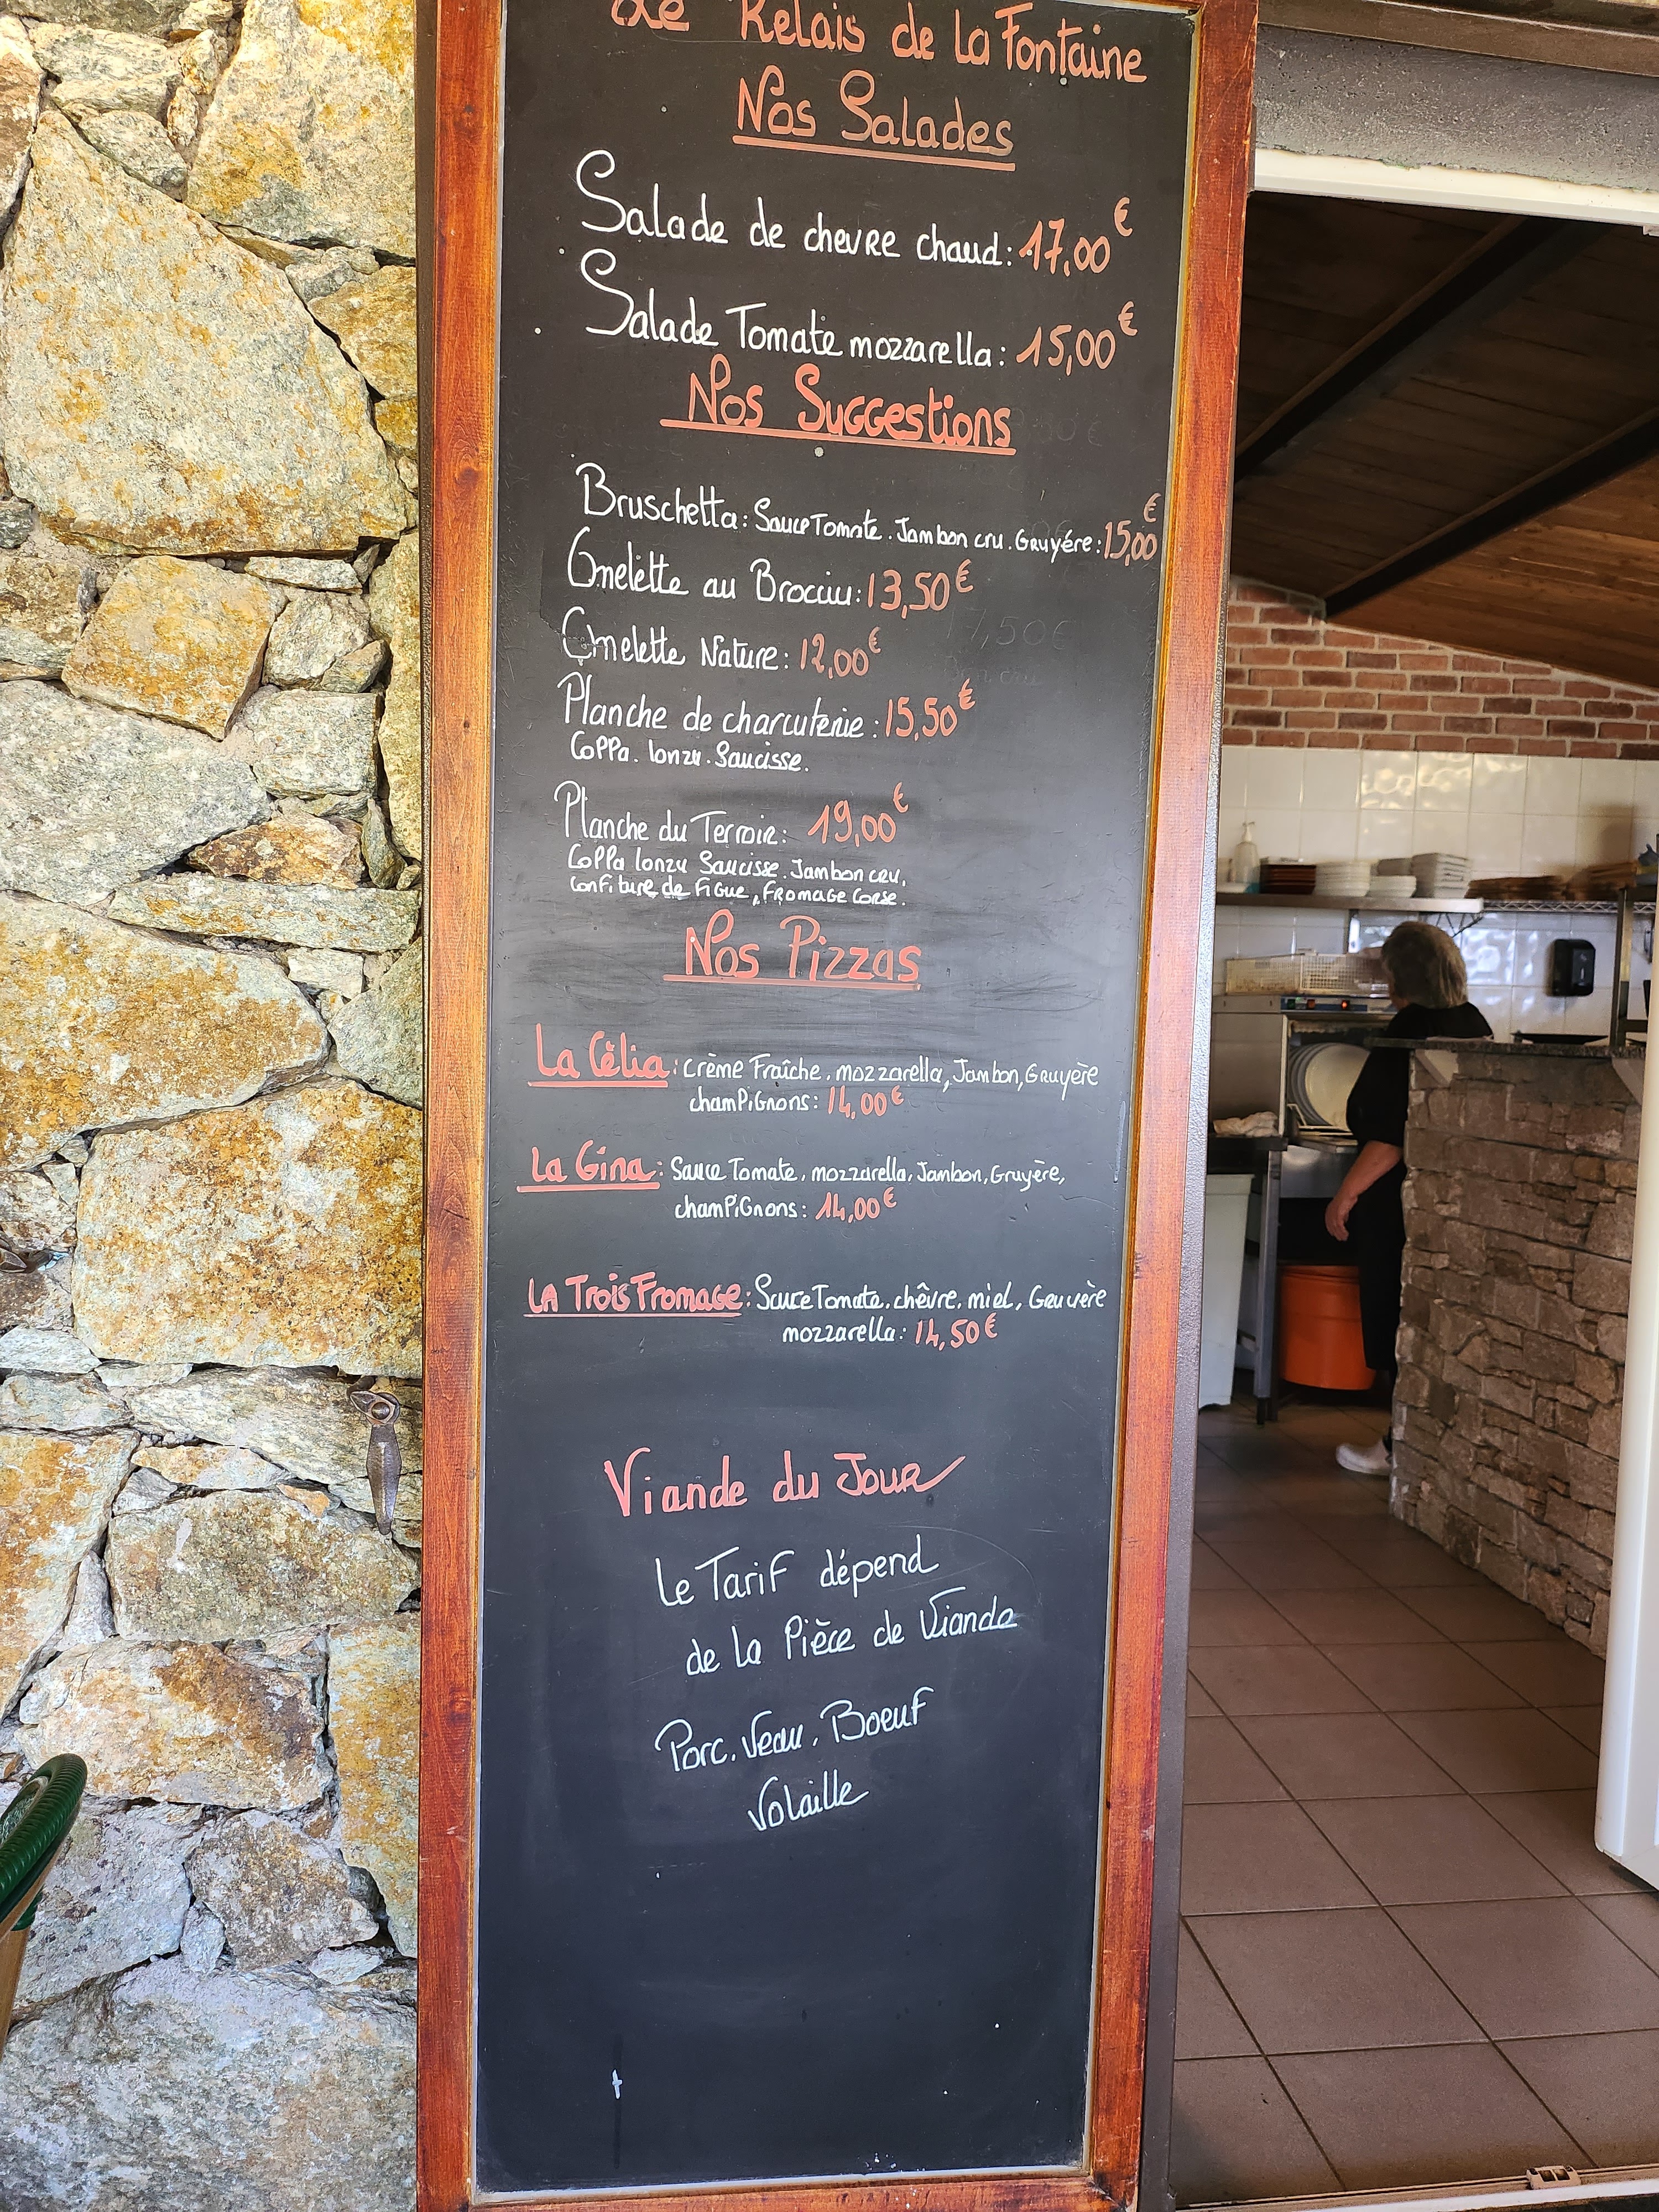 Le Relais de la Fontaine
Nos Salades
Salade de chevre chaud: 17,00€
Salade Tomate mozzarella: 15,00€
Nos Suggestions
Bruschetta: Sauce Tomate. Jambon cru. Gruyére: 15,00€
Omelette au Brocciu: 13,50€
Omelette Nature: 12,00€
Planche de charcuterie: 15,50€
Coppa. lonzu. Saucisse.
Planche du Terroir: 19,00€
Coppa lonzu Saucisse. Jambon cru.
Confiture de Figue, Fromage Corse.
Nos Pizzas
La Célia: crème Fraîche. mozzarella, Jambon, Gruyère
champignons: 14,00€
La Gina: Sauce Tomate, mozzarella, Jambon, Gruyère,
champignons: 14,00€
LA Trois Fromage: Sauce Tomate. chêvre. miel, Gruyère
mozzarella: 14,50€
Viande du Jour
Le Tarif dépend
de la Pièce de Viande
Porc. Veau. Boeuf
Volaille